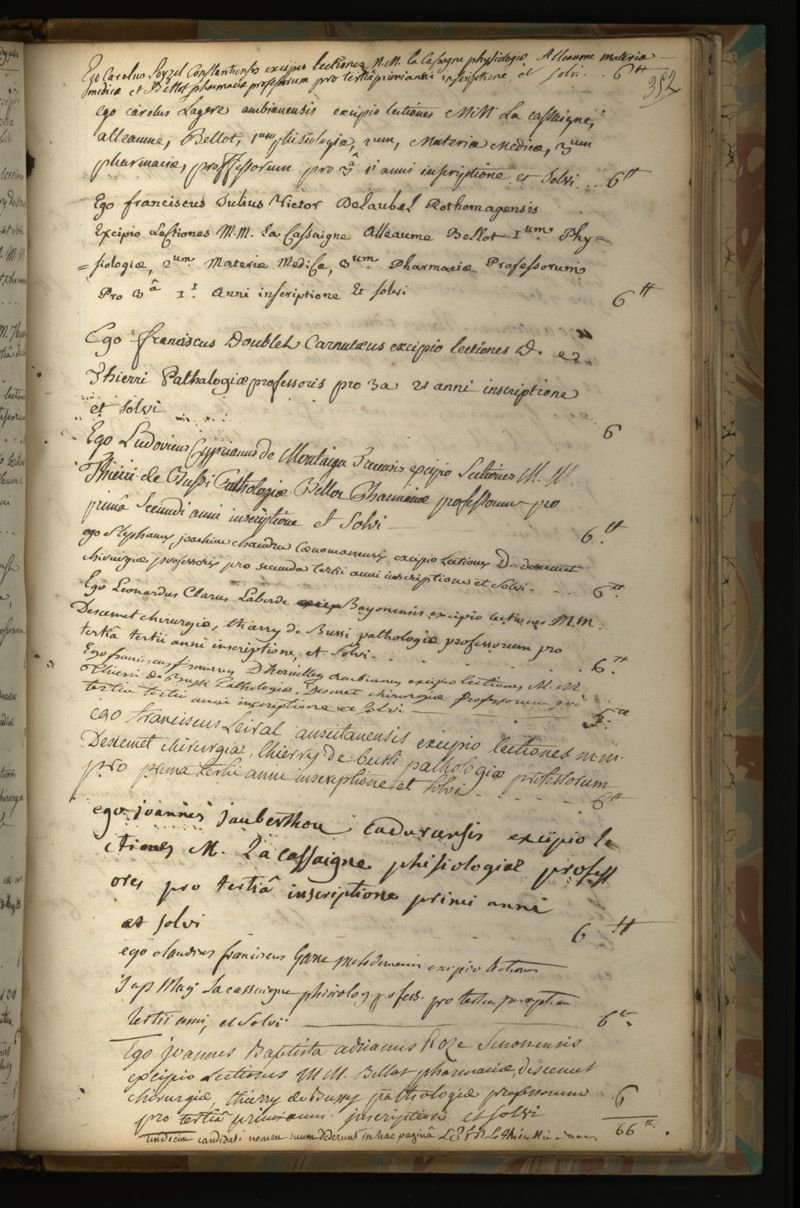 Ego Carolus Constantiensis excipio lectiones M.M. la Cassagne physiologiæ, Alleaume materiæ
medicæ et Bellot pharmaciæ professorum pro tertia primi anni inscriptione, et solvi . . 6 ₶
352
ego carolus Lagere ambianensis excipio lectiones MM La cassaigne,
alleaume, Bellot, 1um phisiologiæ, 2um, Materiæ Medicæ, 3um
pharmaciæ, proffessorum pro 3â 1i anni inscriptione et solvi . . . 6 ₶
Ego franciscus Julius Victor Delaubel Rothomagensis
Excipio Lectiones M.M. La Cassaigne Alleaume Bellot 1um Phy=
=siologiæ, 2um Materiæ Medicæ, 3um Pharmaciæ Professorum
Pro 3â 1i Anni inscriptione Et solvi 6 ₶
Ego franciscus Doublet Carnutæus excipio lectiones D. e2
Thierri Pathalogiæ professoris pro 3a 2i anni inscriptione
et solvi 6
Ego Ludovicus Cyprianus de excipio Lectiones M. M.
Thieri de Bussi Pathologiæ Bellot Pharmaciæ professorum pro
primâ secundi anni inscriptione et Solvi 6 ₶
ego Stephanus joachim cænomanensis excipio lectiones D. descemet
chirurgiæ professoris pro secunda tertii anni inscriptione et Solvi . . . 6 ₶
Ego Leonardus Clarus Laborde Bayonensis excipio lectiones MM.
Descemet chirurgiæ, thiarry de Bussi pathologiæ professorum pro
tertiâ tertii anni inscriptione, et Solvi . . . . . . 6 ₶
Ego franciscus ambianus excipio lectiones M. M.
Thierri de Bussi Pathologiæ, Descmet chirurgiæ Professorum pro
tertia tertii anni inscriptione et Solvi 6 ₶
ego franciscus Leiral auscitanensis excipio lectiones m.m.
Descemet chirurgiæ, thierry de bussi pathologiæ professorum
pro prima tertii anni inscriptione et solvi - - - - - 6 ₶
ego joannes jauberthou cadurensis excipio le
ctiones M. La cassaigne phisiologiæ profess
oris pro tertiâ inscriptione primi anni
et solvi 6 ₶
ego claudius franciscus excipio lectiones
La cassaigne phisiolog profess. pro tertia
tertii anni, et Solvi 6 ₶
Ego joannes Baptista adrianus Roze Senonensis
excipio Lectiones MM. Bellot pharmaciæ, descemet
chirurgiæ, thierry de bussy pathologiæ professorum
pro tertiâ primi anni inscriptione et solvi 6
undecim candidati nomen suum dederunt in hac paginâ 66 ₶